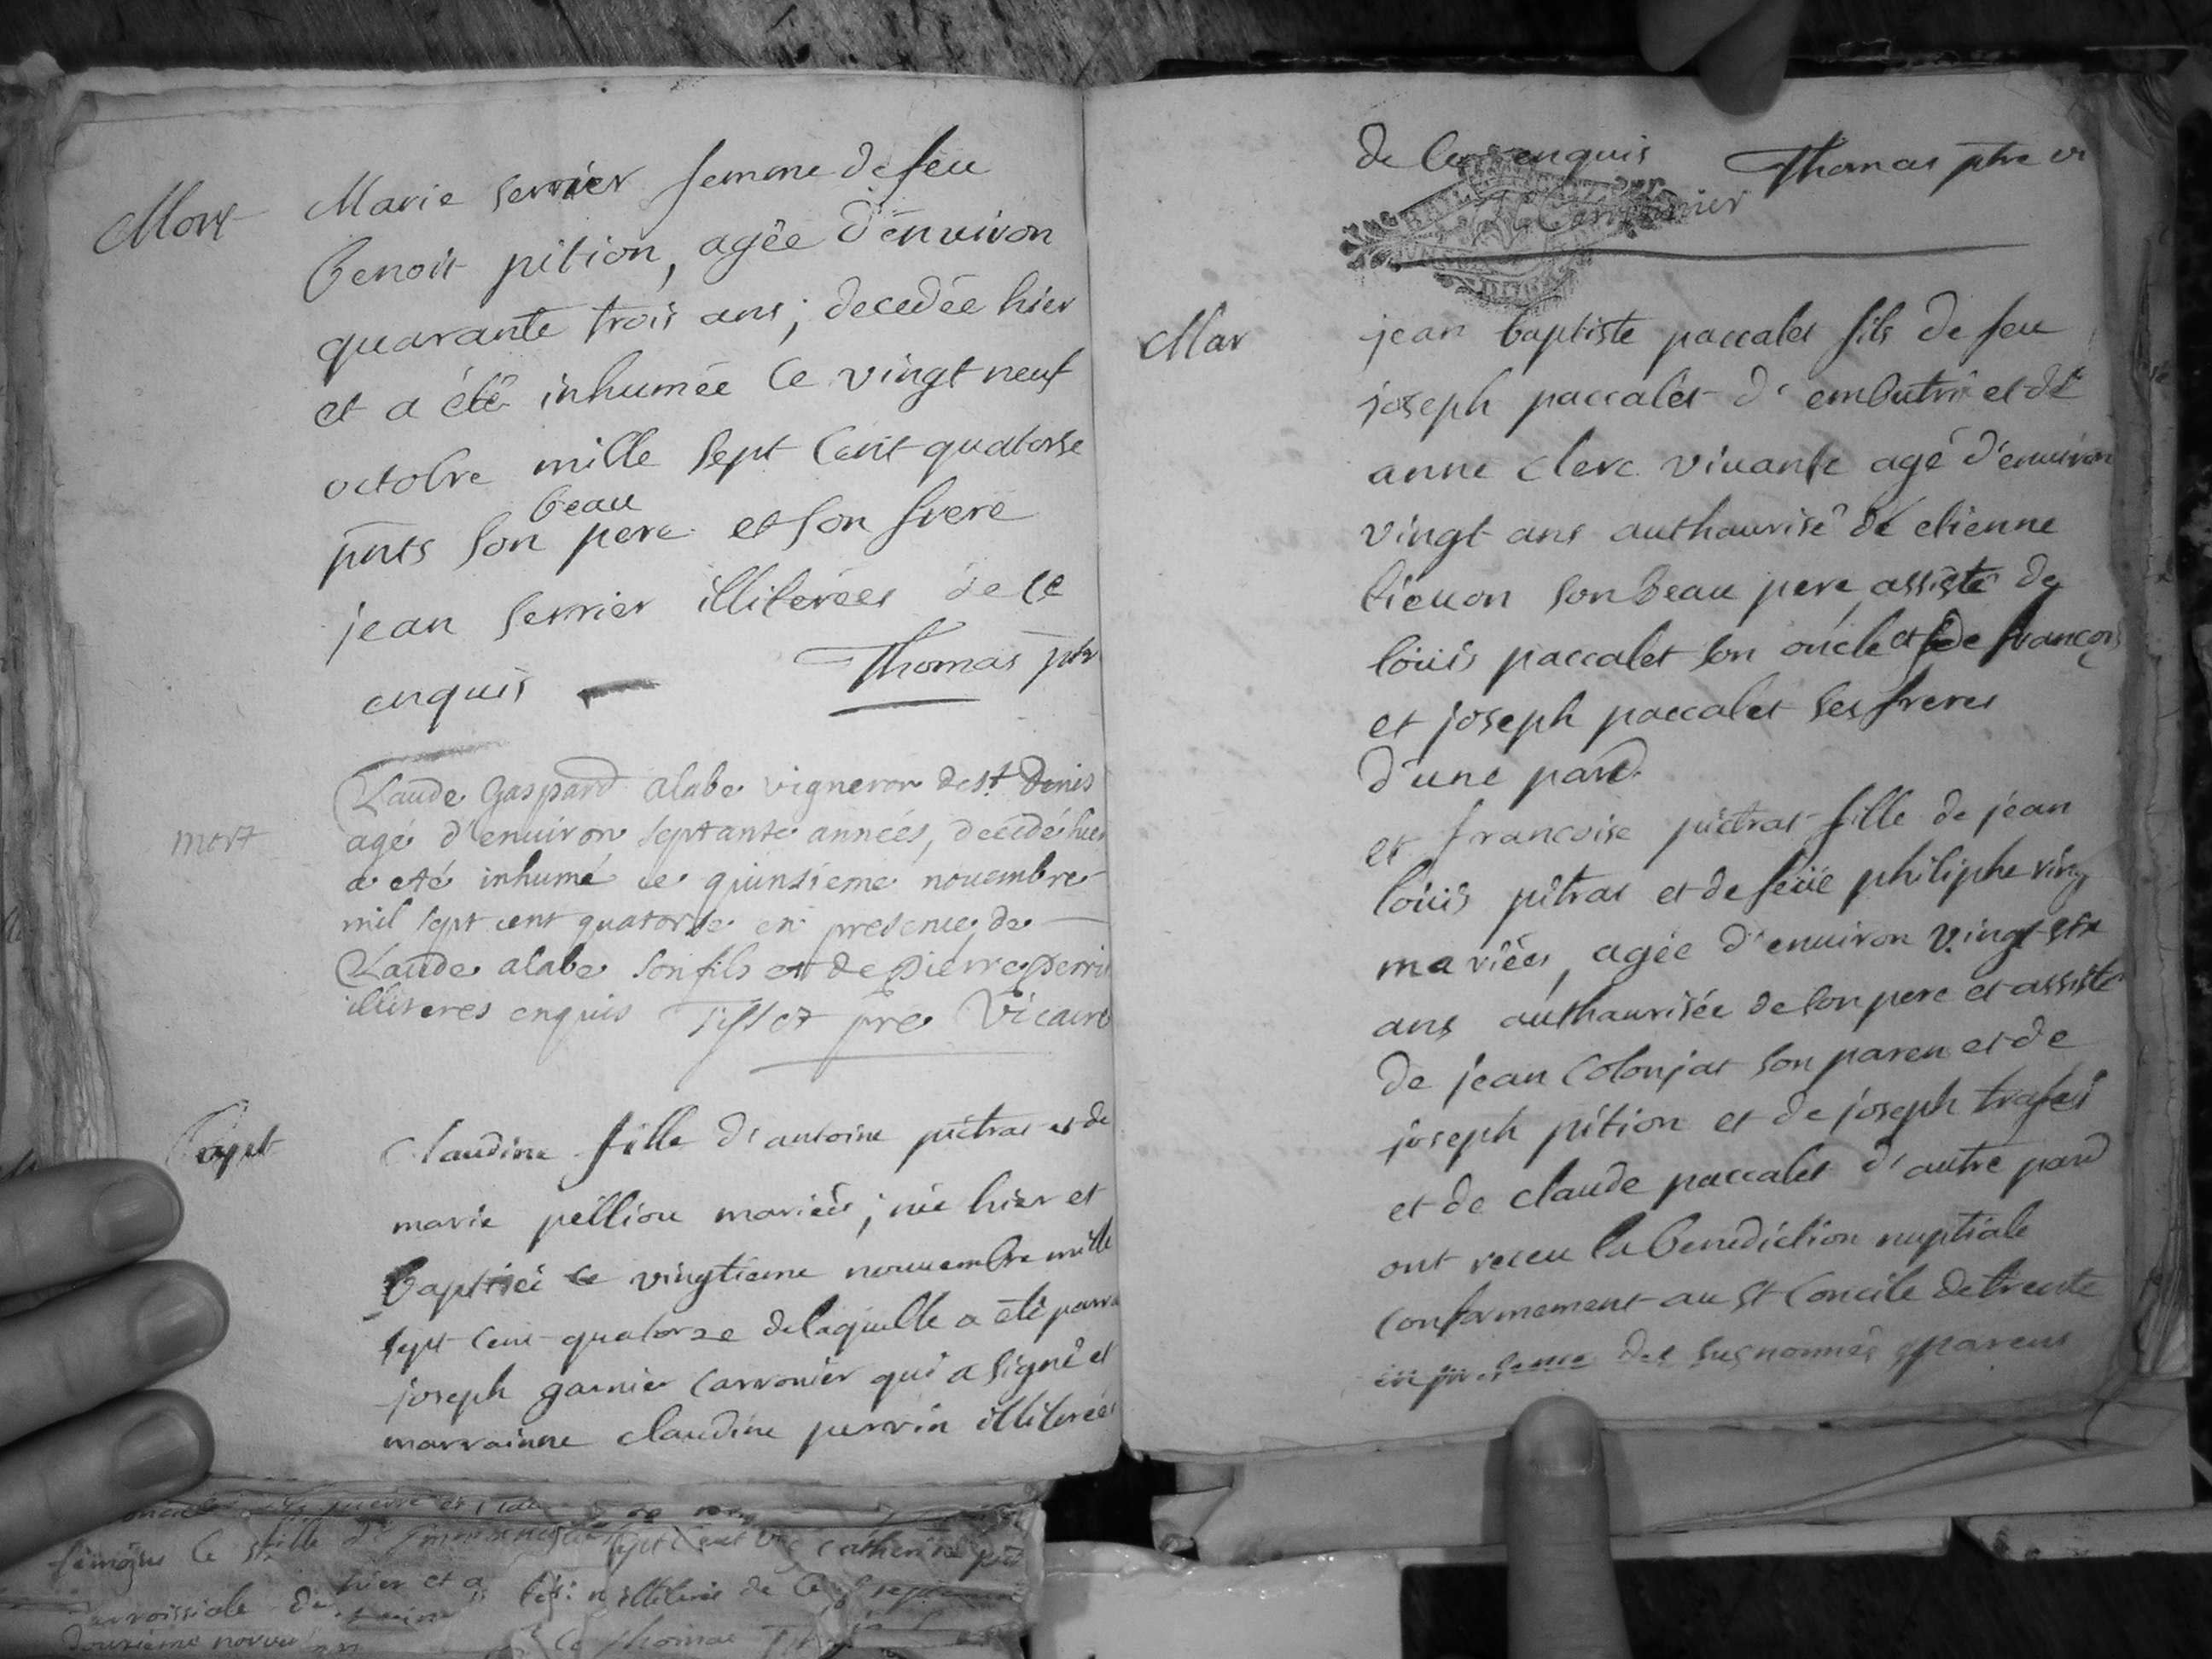 Mort
Marie serrier femme de feu
benoit pition, agée d'environ
quarante trois ans; decedée hier
et a été inhumée ce vingt neuf
octobre mille sept cent quatorse
beau
pnts son pere et son frere
jean serrier illiterées de ce
enquis Thomas ptr
mort
Claude Gaspard alabe vigneron de st. Denis
agé d'enuiron septante années, decedé hier
a eté inhumé ce quinsieme nouembre
mil sept cent quatorse en presence de
Claude alabe son fils et de pierre perri
illiteres enquis Tissot pre Vicaire
bapt
Claudine fille d'antoine pictras et de
marie pillion mariés; née hier et
baptisée ce vingtieme nouuembre mille
sept cent quatorze de laquelle a été parra
joseph garnier carronier qui a signé et
marrainne claudine perrin illiterées
de ce enquis Thomas ptre vi
Mar
jean baptiste paccalet fils de feu
joseph paccalet d' et de
anne clerc viuante agé d'enuiron
vingt ans authaurisé de etienne
tieuon son beau pere assisté de
louis paccalet son oncle et de françois
et joseph paccalet ses freres
d'une pard.
et francoise pictras fille de jean
louis pitras et de feüe philiphe
mariées, agée d'enuiron vingt six
ans authaurisée de son pere et assisté
de jean colonjat son paren et de
joseph pition et de joseph
et de claude paccalet d'autre pard
ont receu la benediction nuptiale
conformement au st concile de trente
en presence des susnommés parens
fille
hier et a
illiteres de ce
Thomas